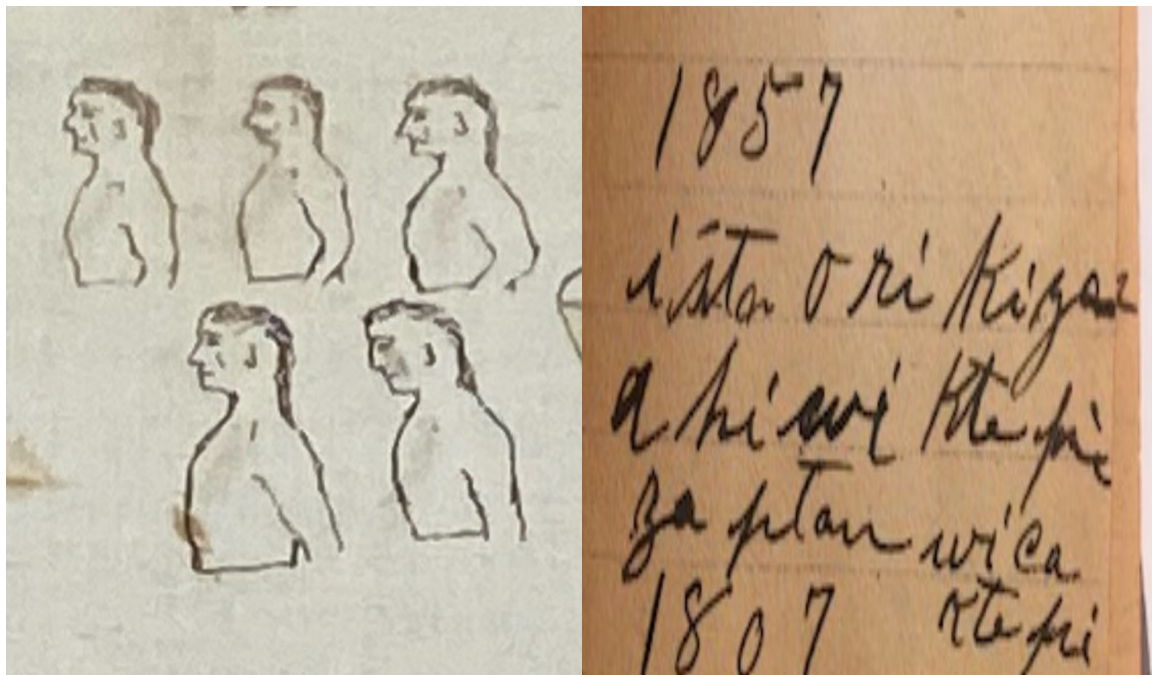 1857
o ri Kizan
a hi wi Kte pi
za ptan wi ca
1807 Kte pi